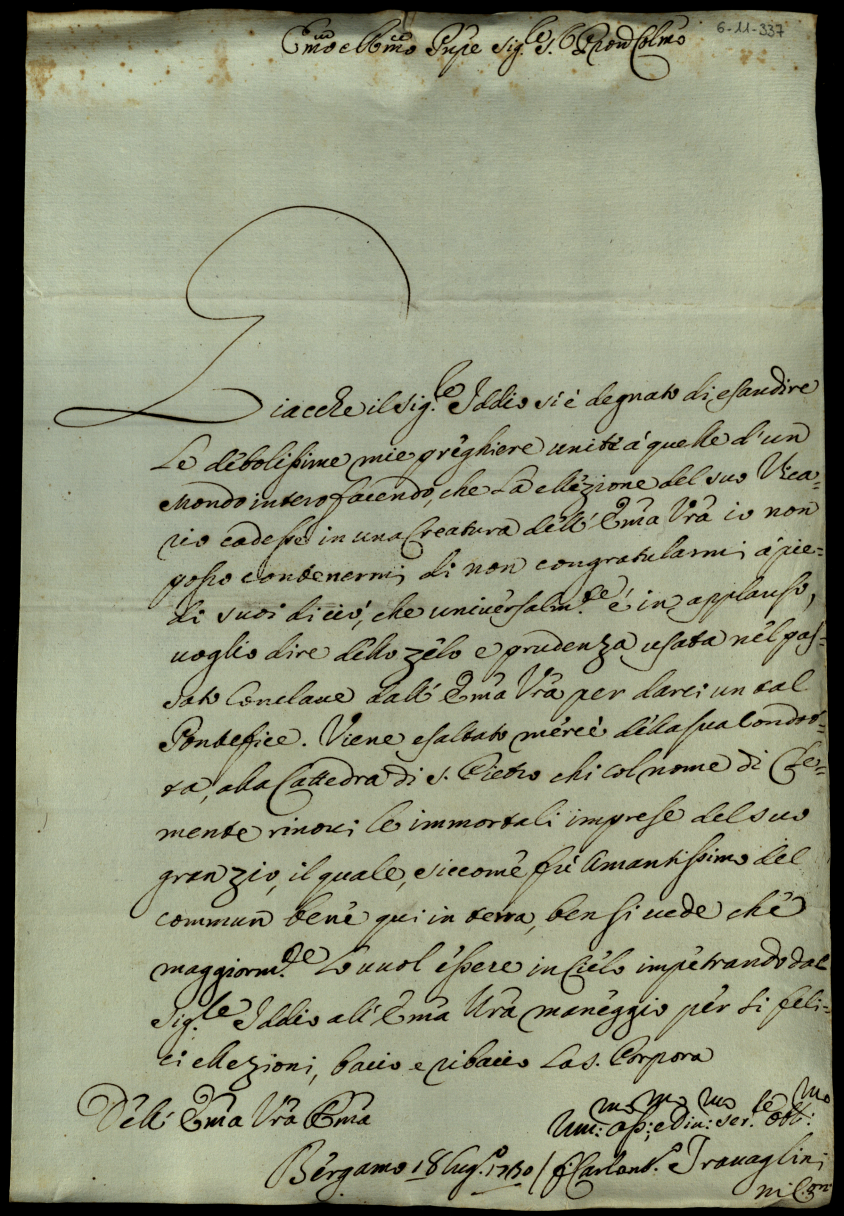 6-11-337
Emo e Rmo Pnpe Sig.re S. Pron Colmo
Giacche il Sig.re Iddio si è degnato di esaudire
Le debolissime mie preghiere unite à quelle d'un
Mondo intero facendo, che La ellezione del suo Vica=
rio cadesse in una Creatura dell' Ema Vrã io non
posso contenermi di non congratularmi á pie=
di suoi di ciò, che universalm.te é in applauso,
voglio dire dello zelo e prudenza usata nel pas=
sato Conclave dall' Ema Vrã per darci un tal
Pontefice. Viene esaltato mercè della sua Condot=
ta, alla Cattedra di S. Pietro chi col nome di Cle=
mente rinovi le immortali imprese del suo
gran zio, il quale, siccome fù Amantissimo del
commun bene qui in terra, ben si vede che
maggiorm.te Lo vuol essere in Cielo impetrando dal
Sig.re Iddio all' Ema Vrã maneggio per sì feli=
ci ellezioni, bacio e ribacio La S. Porpora
Dell' Ema Vrã Ema
Um:mo ss:mo e div:mo ser.re obb:mo
Bergamo 18 Lug.o 1730 / f. Carlant.o Travaglini